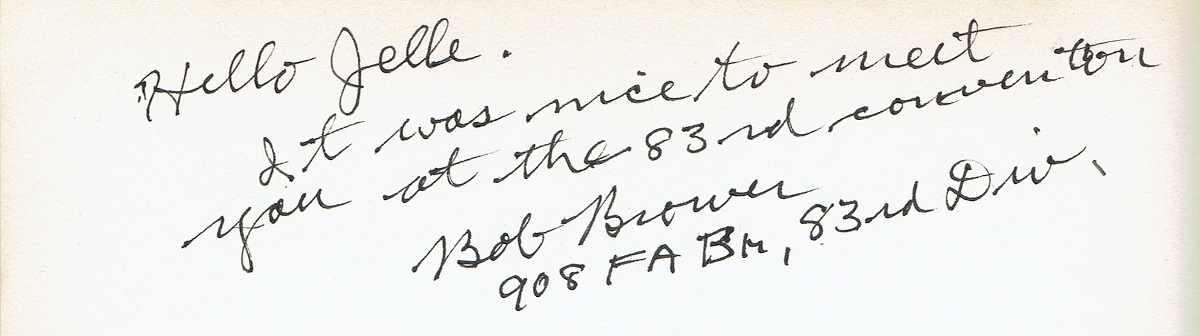 Hello Jelle.
It was nice to meet
you at the 83rd convention
Bob Brower
908 FA Bn, 83rd Div.